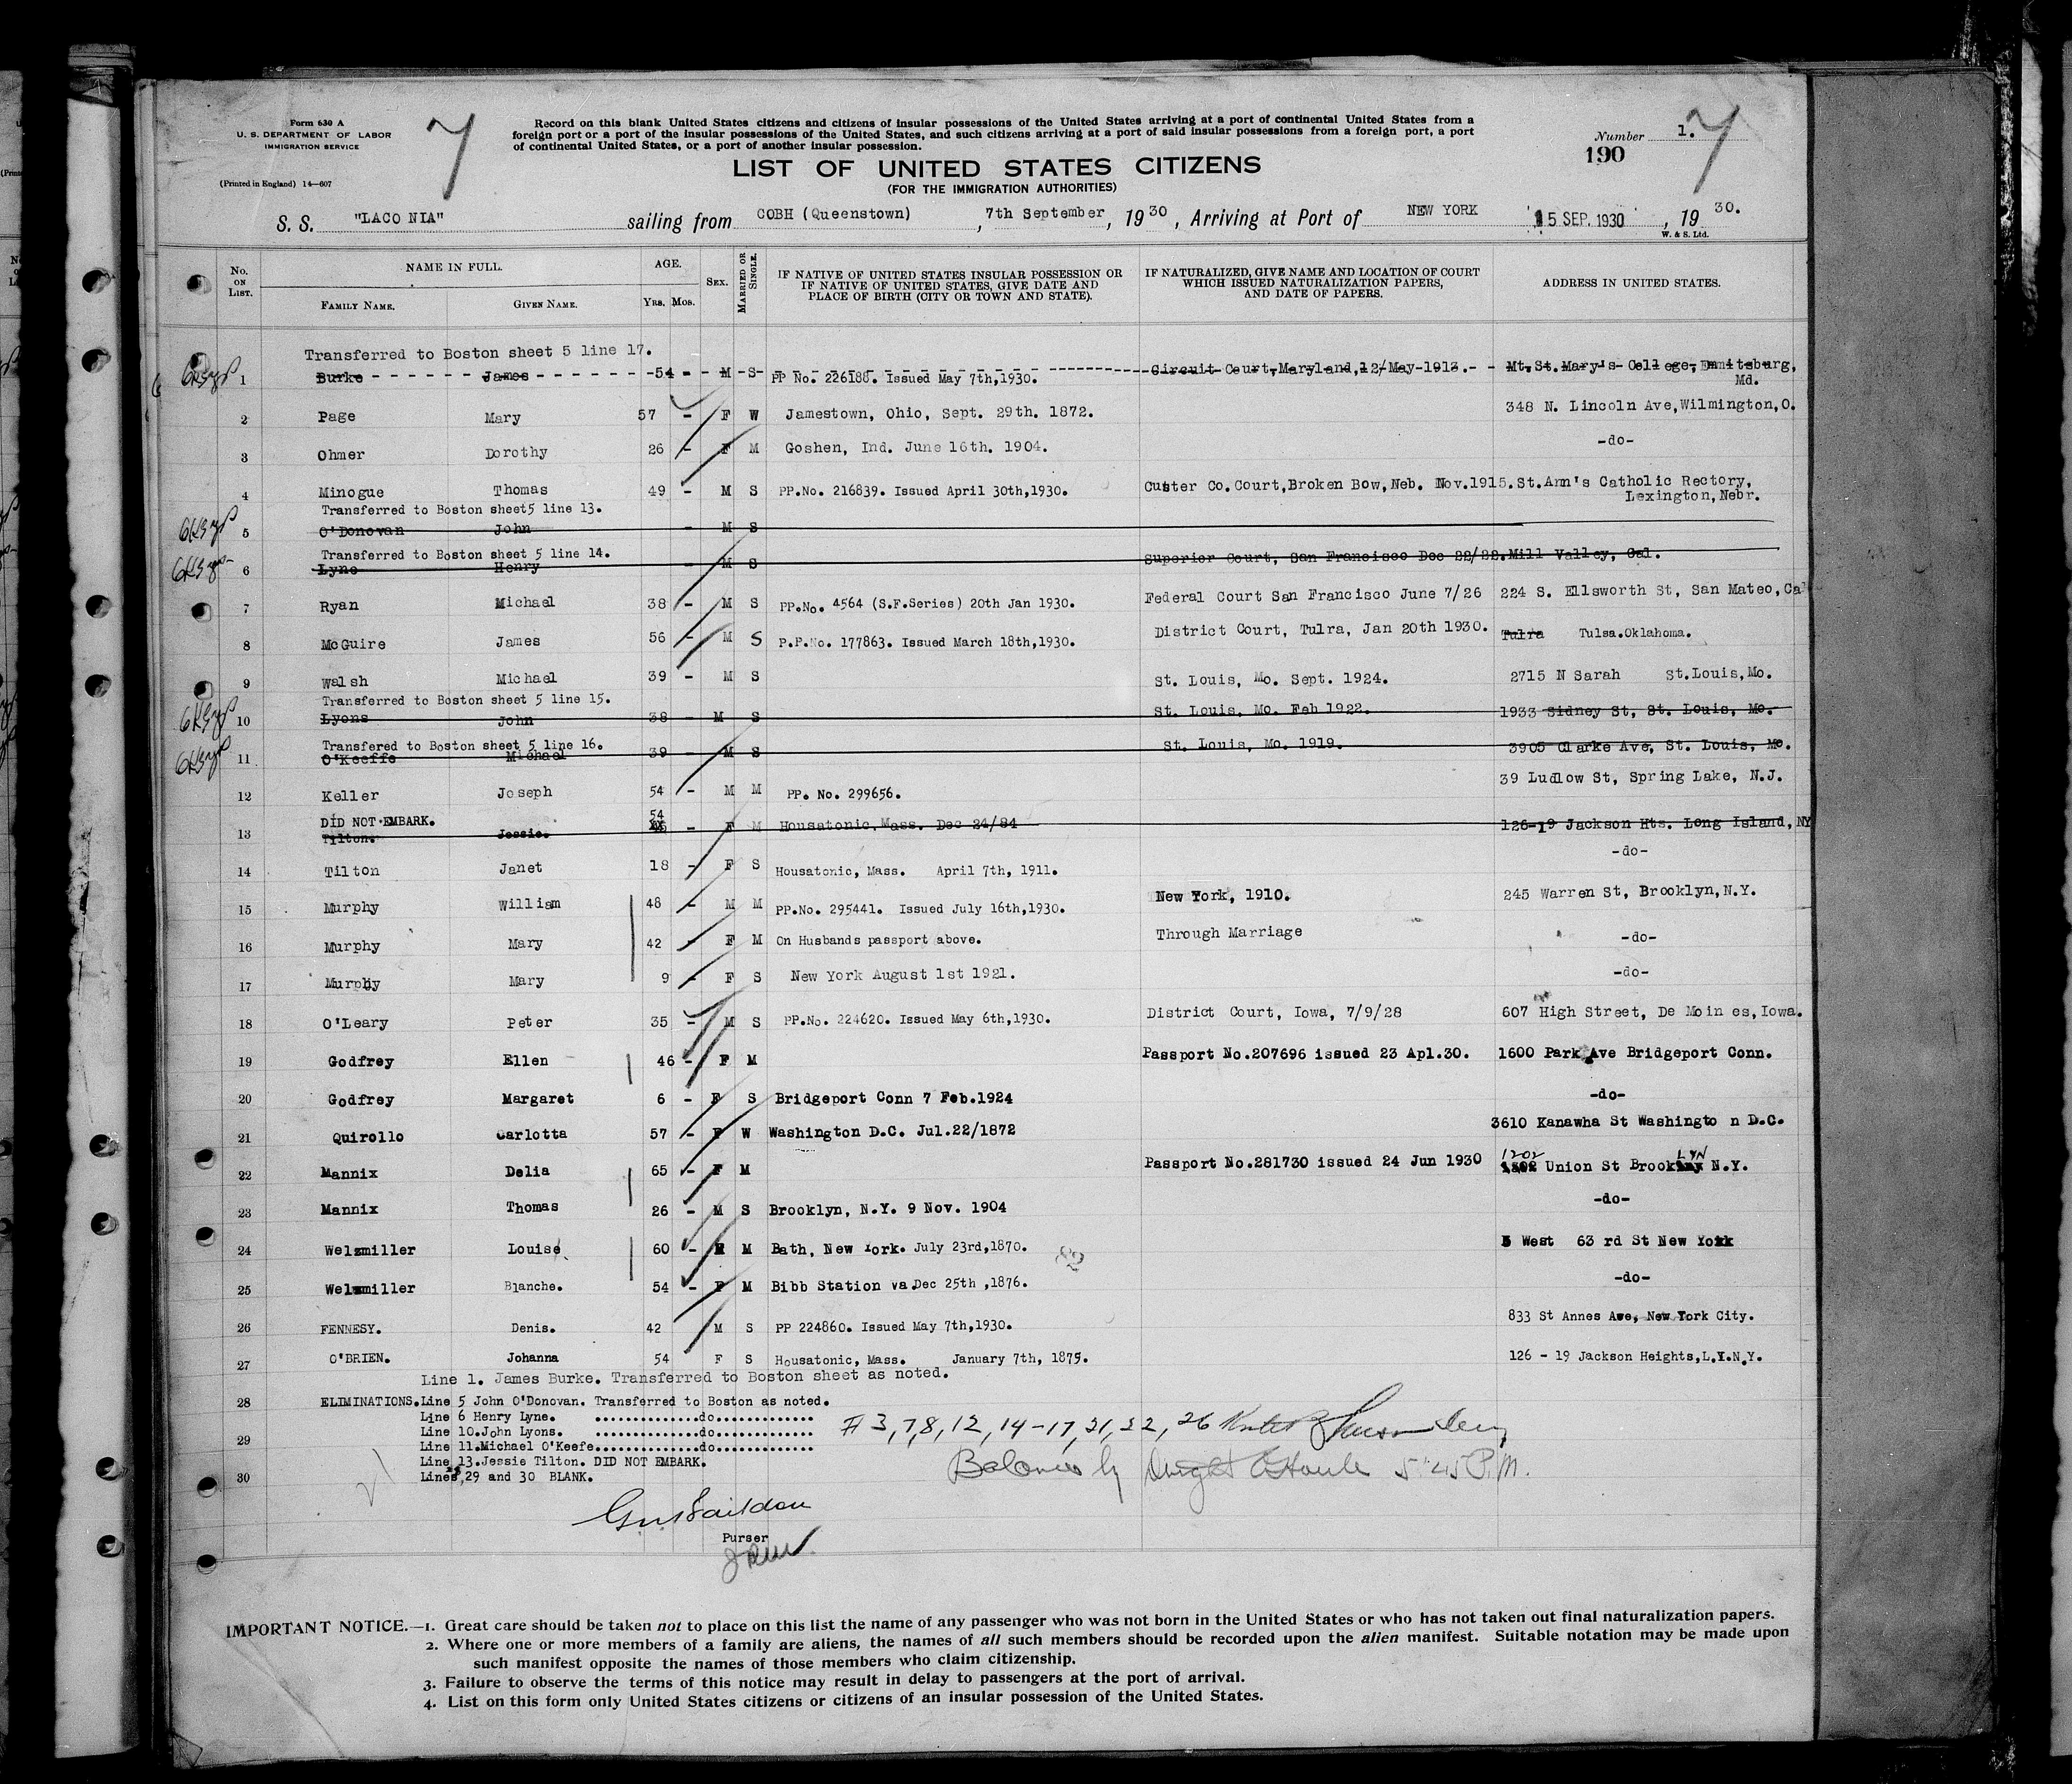 Form 630 A
U. S. DEPARTMENT OF LABOR
IMMIGRATION SERVICE
(Printed in England) 14—607
7
Record on this blank United States citizens and citizens of insular possessions of the United States arriving at a port of continental United States from a
foreign port or a port of the insular possessions of the United States, and such citizens arriving at a port of said insular possessions from a foreign port, a port
of continental United States, or a port of another insular possession.
Number 1. 7
190
LIST OF UNITED STATES CITIZENS
(FOR THE IMMIGRATION AUTHORITIES)
S. S. "LACO NIA" sailing from COBH (Queenstown) , 7th September, 1930, Arriving at Port of NEW YORK 15 SEP. 1930 , 19 30.
W. & S. Ltd.
No. ON LIST. NAME IN FULL. FAMILY NAME. GIVEN NAME. AGE. YRS. MOS. SEX. MARRIED OR SINGLE. IF NATIVE OF UNITED STATES INSULAR POSSESSION OR IF NATIVE OF UNITED STATES, GIVE DATE AND PLACE OF BIRTH (CITY OR TOWN AND STATE). IF NATURALIZED, GIVE NAME AND LOCATION OF COURT WHICH ISSUED NATURALIZATION PAPERS, AND DATE OF PAPERS. ADDRESS IN UNITED STATES.
Transferred to Boston sheet 5 line 17.
1 Burke James 54 - M S PP No. 226188. Issued May 7th,1930. Circuit Court,Maryland,12/May-1913. Mt.St.Mary's College, Emmitsburg,
Md.
2 Page Mary 57 - F W Jamestown, Ohio, Sept. 29th. 1872. 348 N. Lincoln Ave,Wilmington,O.
3 Ohmer Dorothy 26 - F M Goshen, Ind. June 16th. 1904. -do-
4 Minogue Thomas 49 - M S PP.No. 216839. Issued April 30th,1930. Custer Co.Court,Broken Bow,Neb. Nov.1915. St.Ann's Catholic Rectory,
Lexington,Nebr.
Transferred to Boston sheet5 line 13.
5 O'Donovan John - M S
Transferred to Boston sheet 5 line 14.
6 Lyne Henry - M S Superior Court, San Francisco Dec 22/22. Mill Valley, Cal.
7 Ryan Michael 38 - M S PP.No. 4564 (S.F.Series) 20th Jan 1930. Federal Court San Francisco June 7/26 224 S. Ellsworth St, San Mateo,Ca
8 McGuire James 56 - M S P.P.No. 177863. Issued March 18th,1930. District Court, Tulra, Jan 20th 1930. Tulra Tulsa.Oklahoma.
9 Walsh Michael 39 - M S St. Louis, Mo. Sept. 1924. 2715 N Sarah St.Louis,Mo.
Transferred to Boston sheet 5 line 15.
10 Lyons John 38 - M S St. Louis, Mo. Feb 1922. 1933 Sidney St, St. Louis, Mo.
Transfered to Boston sheet 5 line 16.
11 O'Keeffe Michael 39 - M S St. Louis, Mo. 1919. 3905 Clarke Ave, St. Louis, Mo.
12 Keller Joseph 54 - M M PP. No. 299656. 39 Ludlow St, Spring Lake, N.J.
DID NOT EMBARK.
13 Tilton. Jessie. 54 F M Housatonic, Mass. Dec 24/84 126-19 Jackson Hts. Long Island, NY
14 Tilton Janet 18 - F S Housatonic, Mass. April 7th, 1911. -do-
15 Murphy William 48 - M M PP.No. 295441. Issued July 16th,1930. New York, 1910. 245 Warren St, Brooklyn,N.Y.
16 Murphy Mary 42 - F M On Husbands passport above. Through Marriage -do-
17 Murphy Mary 9 - F S New York August 1st 1921. -do-
18 O'Leary Peter 35 - M S PP.No. 224620. Issued May 6th,1930. District Court, Iowa, 7/9/28 607 High Street, De Moin es,Iowa.
19 Godfrey Ellen 46 - F M Passport No.207696 issued 23 Apl.30. 1600 Park Ave Bridgeport Conn.
20 Godfrey Margaret 6 - F S Bridgeport Conn 7 Feb.1924 -do-
21 Quirollo Carlotta 57 - F W Washington D.C. Jul.22/1872 3610 Kanawha St Washingto n D.C.
22 Mannix Delia 65 - F M Passport No.281730 issued 24 Jun 1930 1202 Union St Brooklyn N.Y.
23 Mannix Thomas 26 - M S Brooklyn, N.Y. 9 Nov. 1904 -do-
24 Welzmiller Louise 60 - M M Bath, New York. July 23rd,1870. 5 West 63 rd St New York
25 Welzmiller Blanche. 54 - F M Bibb Station va.Dec 25th ,1876. -do-
26 FENNESY. Denis. 42 M S PP 224860. Issued May 7th,1930. 833 St Annes Ave, New York City.
27 O'BRIEN. Johanna 54 F S Housatonic, Mass. January 7th, 1875. 126 - 19 Jackson Heights,L.I.N.Y.
Line 1. James Burke. Transferred to Boston sheet as noted.
28 ELIMINATIONS. Line 5 John O'Donovan. Transferred to Boston as noted.
Line 6 Henry Lyne. ..............do..............
29 Line 10.John Lyons. ..............do..............
Line 11.Michael O'Keefe..............do..............
Line 13.Jessie Tilton. DID NOT EMBARK.
30 Lines 28,29 and 30 BLANK.
# 3, 7, 8, 12, 14-17, 21, 22, 26
Balance by Dwight 5:45 P.M.
Purser
IMPORTANT NOTICE.—1. Great care should be taken not to place on this list the name of any passenger who was not born in the United States or who has not taken out final naturalization papers.
2. Where one or more members of a family are aliens, the names of all such members should be recorded upon the alien manifest. Suitable notation may be made upon
such manifest opposite the names of those members who claim citizenship.
3. Failure to observe the terms of this notice may result in delay to passengers at the port of arrival.
4. List on this form only United States citizens or citizens of an insular possession of the United States.